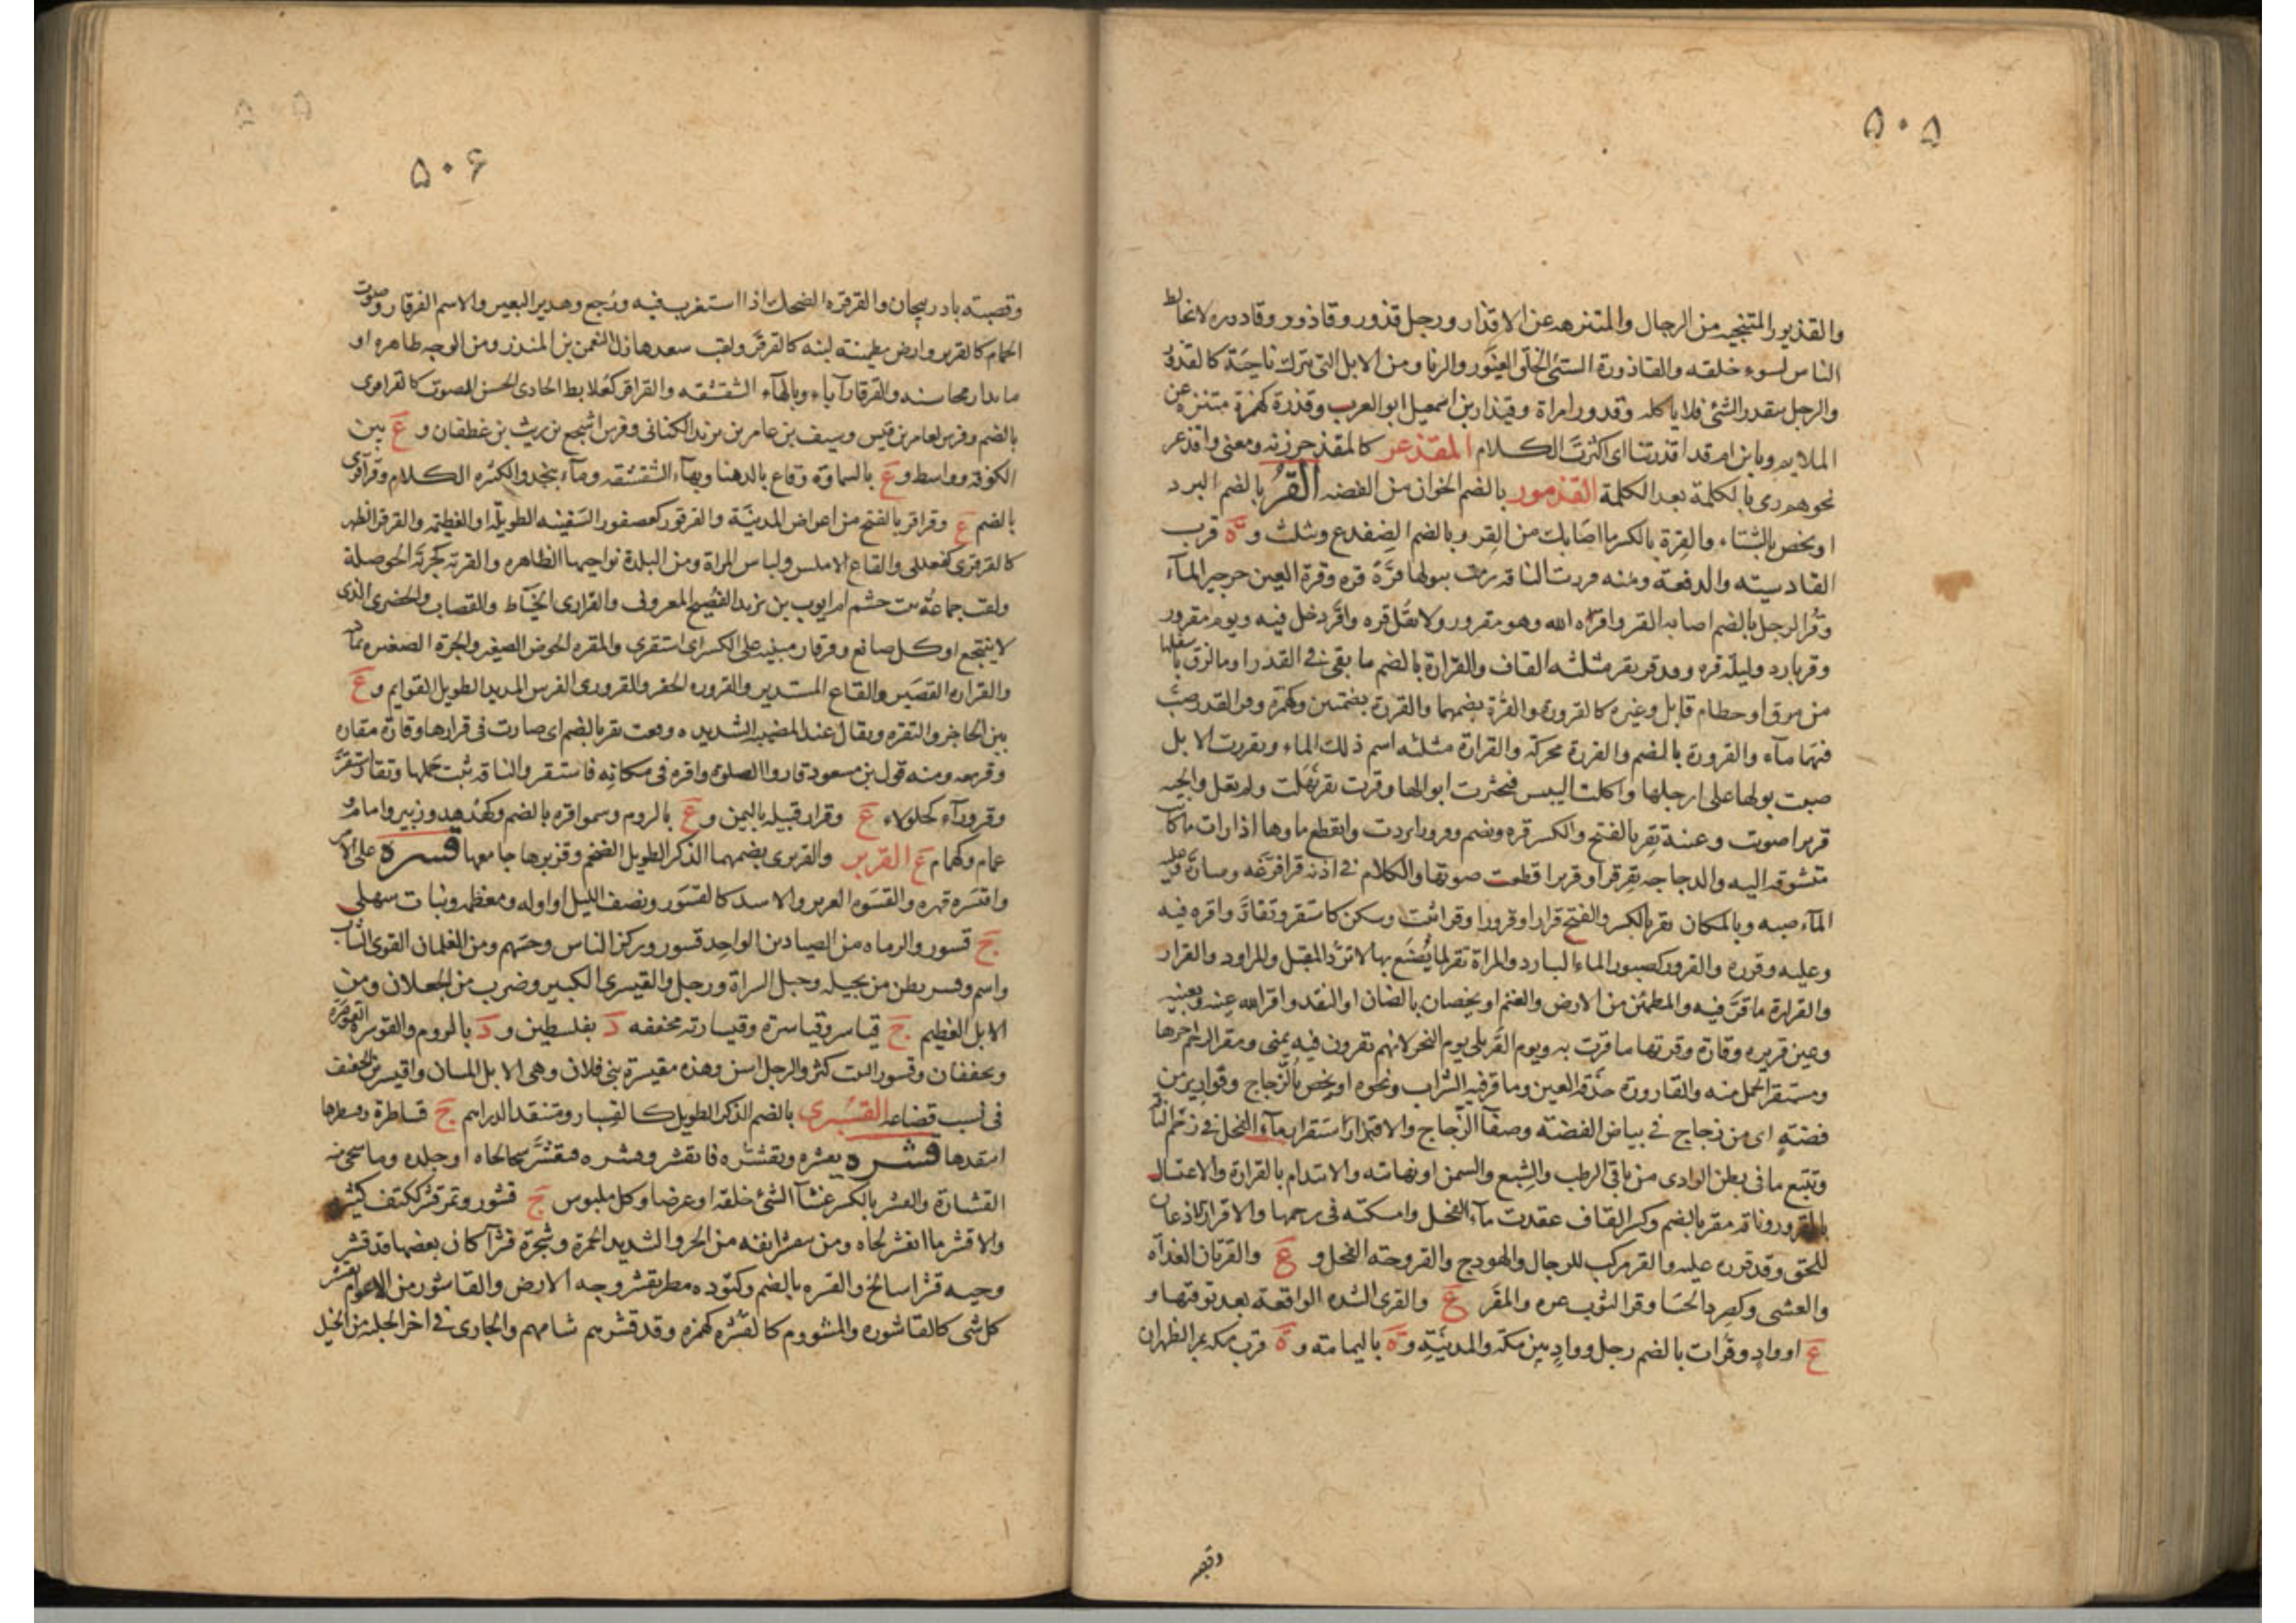 ۵۰۵
والقذور المتنحية من الرجال والمتنزهه عن الاقذار ورجل قذور وقاذور وقاذوره لا يخالط
الناس لسوء خلقه والقاذورة السيئ الخلق الغيور والزنا ومن الابل التي تبرك ناحية كالقذور
والرجل يتقذر الشئ فلا ياكله وقذور امراة وقيذار بن اسمعيل ابو العرب وقذرة كهمزة متنزه عن
الملايم ويا بن ام قد اقذرتنا اى اكثرت الكلام المقذعر كالمقذحر زنه ومعنى واقذعر
نحوهم رمى بالكلمة بعد الكلمة القذمور بالضم الخوان من الفضه القر بالضم البرد
او يخص بالشتاء والقرة بالكسر ما اصابك من القر وبالضم الضفدع ويثلث وة قرب
القادسيته والدفعة ومنه قررت الناقه ببولها قرة قره وقرة العين جرجير المآء
وقر الرجل بالضم اصابه القر واقره الله وهو مقرور ولا تقل قره واقر دخل فيه ويوم مقرور
وقر بارد وليلة قره وقد قر يقر مثلثه القاف والقرارة بالضم ما بقى فى القدر او ما لزق باسفلها
من مرق او حطام تابل وغيره كالقرورة والقرة بضمهما والقررة بضمتين وكهمزة وقر القدر صب
فيها مآء والقرورة بالضم والقررة محركة والقرارة مثلثه اسم ذلك الماء وتقررت الابل
صبت بولها على ارجلها واكلت اليبس فتخثرت ابوالها وقرت تقر نهلت ولم تعل والحيه
قريرا صوت وعينه تقر بالفتح والكسر قره وتضم وقرورا بردت وانقطع ماوها او رات ما كانت
متشوقه اليه والدجاجه تقر قرا وقريرا قطعت صوتها والكلام فى اذنه قرا فرغه وساره وعليه
المآء صبه وبالمكان يقر بالكسر والفتح قرارا وقرورا وقرا ثبت وسكن كاستقر وتقار واقره فيه
وعليه وقرره والقرور كصبور الماء البارد والمراة تقر لما يصنع بها لا ترد المقبل والمراود والقرار
والقرارة ما قر فيه والمطمئن من الارض والغنم او يخصان بالضان او النقد واقر الله عينه وبعينه
وعين قريره وقارة وقرتها ما قرت به ويوم القر يلى يوم النحر لانهم يقرون فيه بمنى ومقر الرحم اخرها
ومستقر الحمل منه والقارورة حدقة العين وما قر فيه الشراب ونحوه او يخص بالزجاج وقوارير من
فضته اى من زجاج فى بياض الفضته وصفآ الزجاج والاقترار استقرار مآء الفحل فى رحم الناقه
وتتبع ما فى بطن الوادى من باقى الرطب والشبع والسمن او نهايته والايتدام بالقرارة والاغتسال
بالقرور وناقه مقر بالضم وكسر القاف عقدت مآء الفحل وامسكته فى رحمها والاقرار الاذعان
للحق وقد قرره عليه والقر مركب للرجال والهودج والفروجته الفحل و ع والقرتان الغداه
والعشى وكصرد الحسا وقر الثوب غره والمقر ع والقرى الشده الواقعة بعد توقيها و
ع او واد وقرات بالضم رجل وواد بين مكة والمدينته وة باليمامته وة قرب مكه بمر الظهران
وقصبته
۵۰۶
۵۰۵
وقصبته باذربيجان والقرقره الضحك اذا استغرب فيه ورجع وهدير البعير والاسم القرقار وصوت
الحمام كالقرير وارض مطمئنة لينه كالقرقر ولقب سعد هازل النعمن بن المنذر ومن الوجه ظاهره او
ما بدا من محاسنه والقرقار آناء وبالهآء الشقشقه والقراقر كعلابط الحادى الحسن الصوت كالقراقرى
بالضم وفرس لعامر بن قيس وسيف بن عامر بن يزيد الكنانى وفرس اشجع بن ريث بن غطفان و ع بين
الكوفه وواسط و ع بالسماوة وقاع بالدهنا وبهآء الشقشقه ومآء بنجد والكثره الكلام وقراقرى
بالضم ع وقراقر بالفتح من اعراض المدينة والقرقور كعصفور السفينه الطويلة او العظيمه والقرقر الظهر
كالقرقرى كفعللى والقاع الاملس ولباس المراة ومن البلدة نواحيها الظاهره والقرية كجرية الحوصلة
ولقب جماعة بنت جشم ام ايوب بن يزيد الفصيح المعروف والقرارى الخياط والقصاب والحضرى الذى
لا ينتجع او كل صانع وقرقار مبنيه على الكسر اى استقرى والمقره الحوض الصغير والجرة الصغيره
والقراره القصير والقاع المستدير والقروره الحقير والقرورى الفرس المديد الطويل القوايم و ع
بين الحاجر والنقره ويقال عند المصيبه الشديده وقعت بقر بالضم اى صارت فى قرارها وقارة مقاره
وقر معه ومنه قول بن مسعود قاروا الصلوة واقره فى مكانه فاستقر والناقه ثبت حملها وتقار استقر
وقرورآء كجلولاء ع وقرار قبيله باليمن و ع بالروم وسموا قره بالضم وكهدهد وزبير وامام و
غمام وكهمام ع القزبر والقزبرى بضمهما الذكر الطويل الضخم وقزبرها جامعها قسره على الامر
واقتسره قهره والقسوره العزيز والاسد كالقسور ونصف الليل او اوله ومعظمه ونبات سهلى
ج قسور والرماه من الصيادين الواحد قسور وركز الناس وحسهم ومن الغلمان القوى الشاب
واسم وقسر بطن من بجيله وجبل السراة ورجل والقيسرى الكبير وضرب من الجعلان ومن
الابل العظيم ج قياسر وقياسرة وقيسارته مخففه د بفلسطين و د بالروم والقوسره القوصرة
ويخففان وقسور النبت كثر والرجل اسن وهذه مقيسرة بنى فلان وهى الابل المسان واقيسر بن الخفيف
فى نسب قضاعه القسبرى بالضم الذكر الطويل كالقسبار ومنتقد الدراهم ج قساطرة وقسطرها
انتقدها قشره يقشره وقشره فانقشر وتقشر سحا لحاه او جلده وما سحى منه
القشارة والقشر بالكسر غشآ الشئ خلقه او عرضا وكل ملبوس ج قشور وتمر قشر ككتف كثيره
والاقشر ما انقشر لحاه ومن ينقشر انفه من الحر والشديد الحمرة وشجرة قشرآ كان بعضها قد قشر
وحيه قشرا سالخ والقشره بالضم وكتوده مطر يقشر وجه الارض والقاشور من الاعوام يقشر
كل شى كالقاشوره والمشووم كالقشره كهمزه وقد قشرهم شامهم والجارى فى اخر الحلبه من الخيل